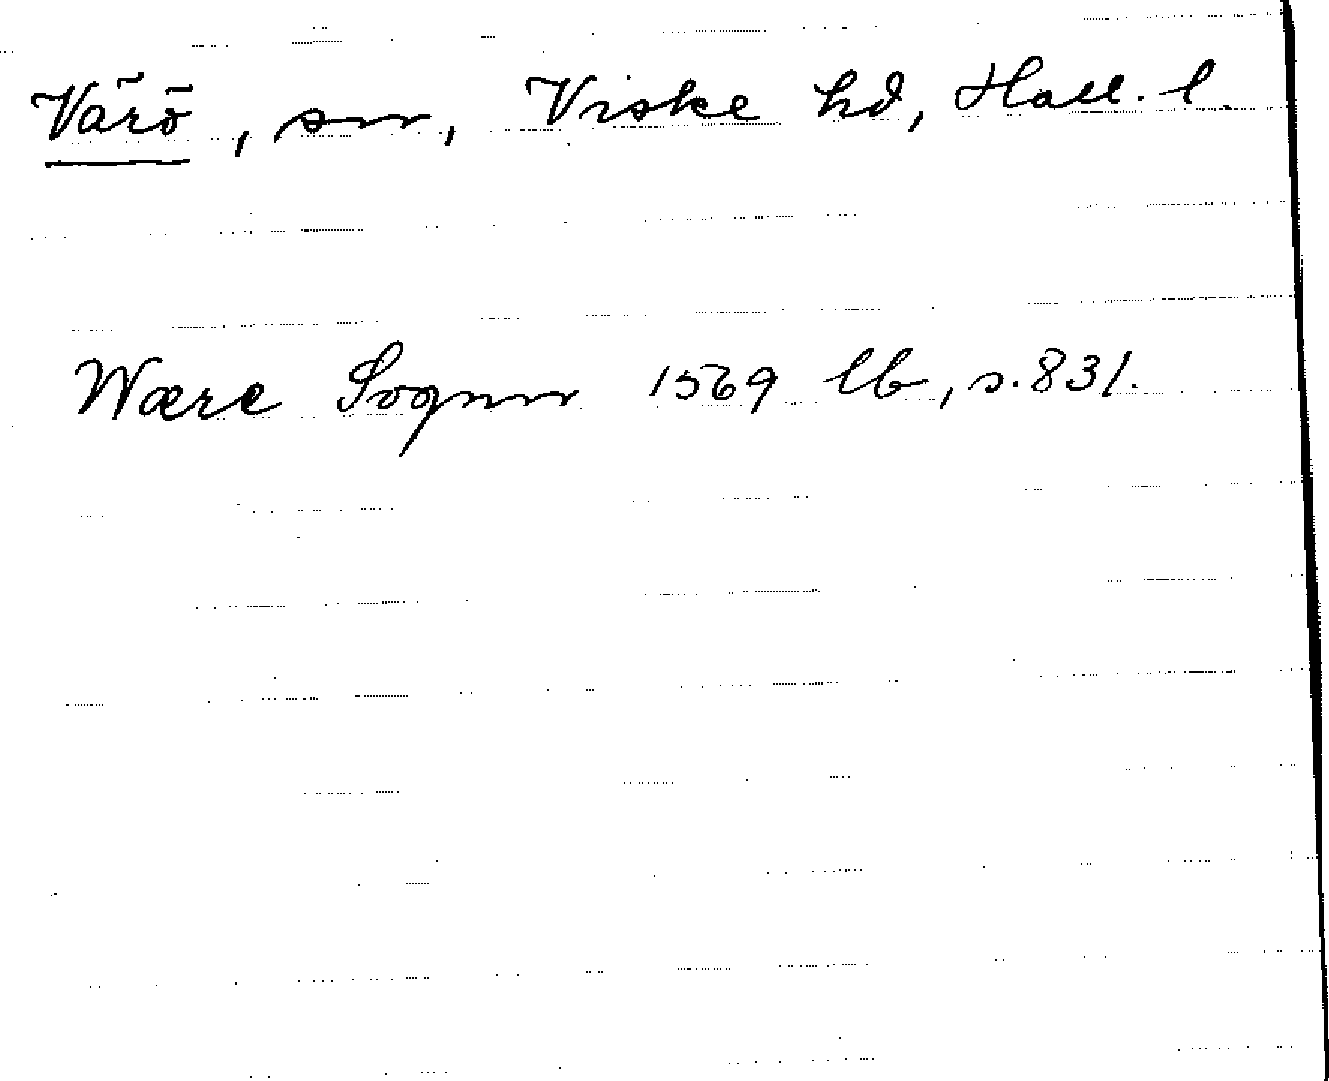 Värö, sn, Viske hd, Hall. l.
Wære Sognn 1569 lb, s. 831.